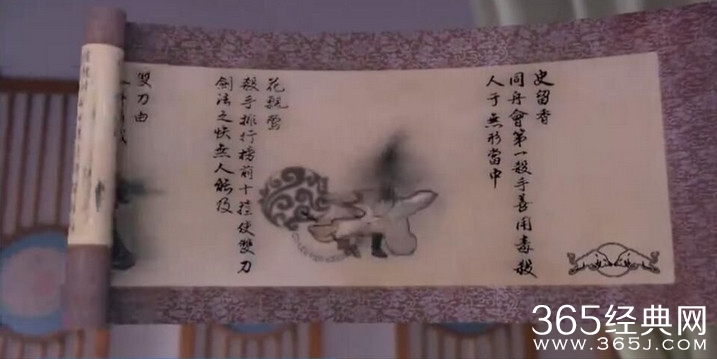 史留香
同舟會第一殺手善用毒殺
人于無形當中
花
殺手排行榜前十擅使雙刀
劍法之快無人能及
雙刀由
365经典网
www.365J.com